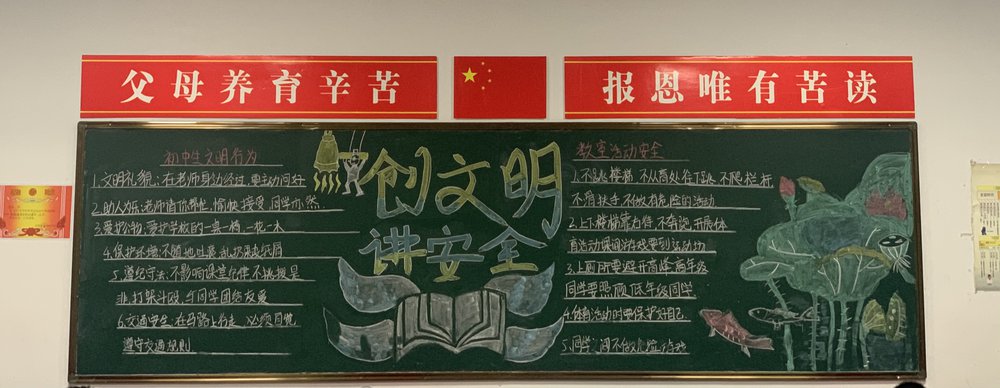 父母养育辛苦
报恩唯有苦读
创文明
讲安全
初中生文明行为
1.文明礼貌:在老师身边经过,要主动问好
2.助人为乐:老师请你帮忙,愉快接受,同学亦然
3.爱护公物:爱护学校的一桌一椅,一花一木
4.保护环境:不随地吐痰,乱扔果皮纸屑
5.遵纪守法:不影响课堂纪律,不挑拨是
非,打架斗殴,与同学团结友爱
6.交通安全:在马路上行走,必须自觉
遵守交通规则
教室活动安全
1.不跳楼梯,不从高处往下跳,不爬栏杆
不滑扶手,不做有危险的活动
2.上下楼梯靠右行,不奔跑,开展体
育活动课间游戏要到活动场
3.上厕所要避开高峰,高年级
同学要照顾低年级同学
4.体育活动时要保护好自己
5.同学间不做危险游戏